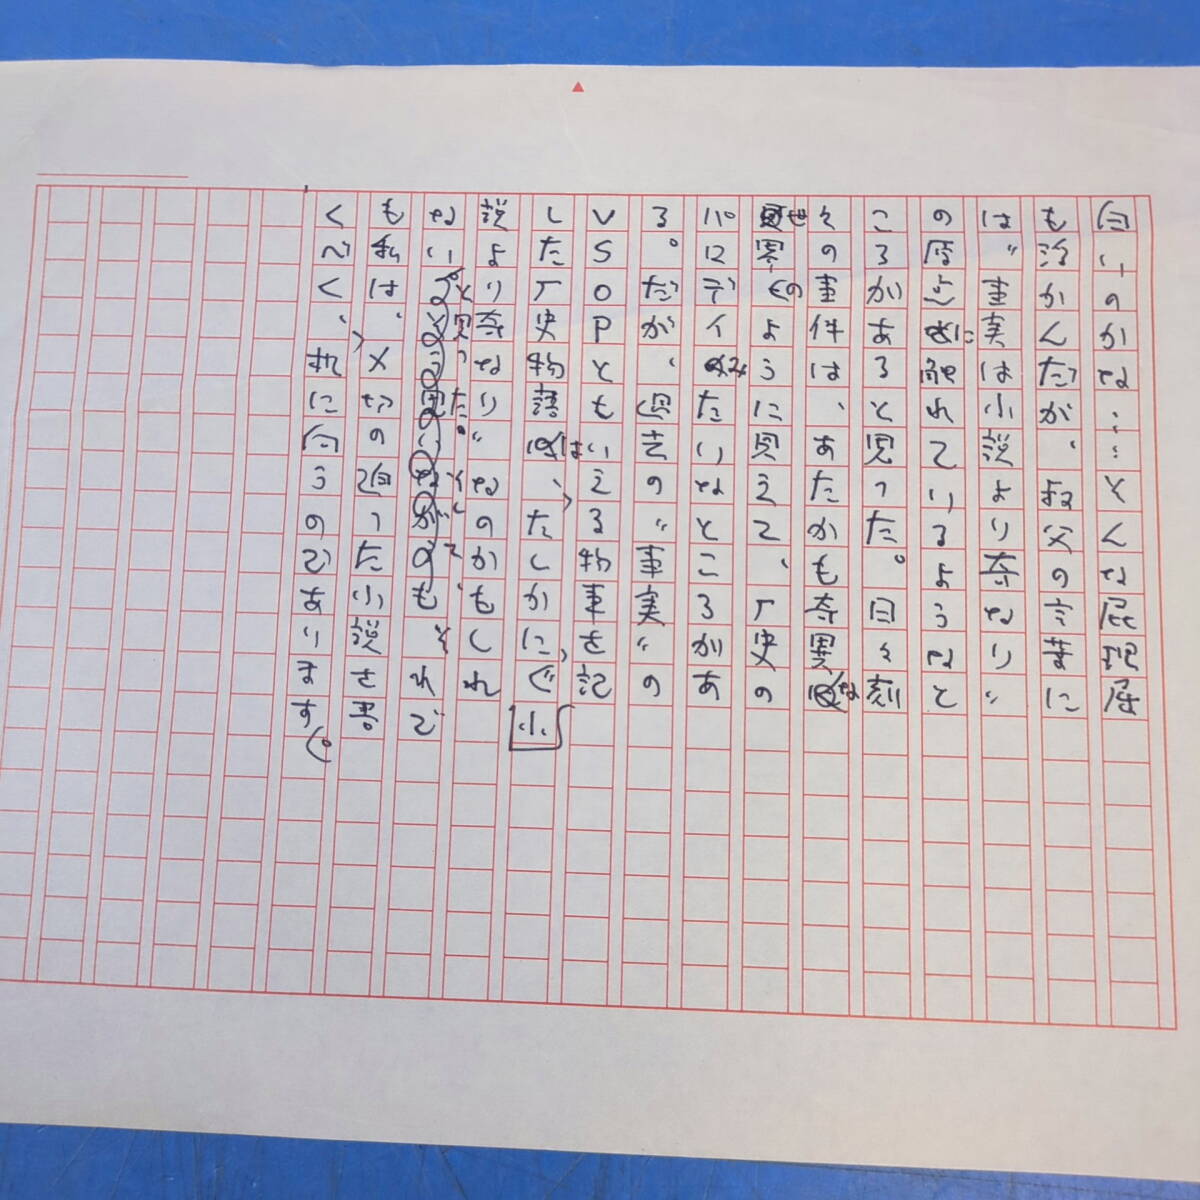 向いのかな……そんな屁理屈
も浮かんだが、叔父の言葉に
は〝事実は小説より奇なり〟
の原点に触れているようなと
ころがあると思った。日々刻
々の事件は、あたかも奇異な
世界のように見えて、厂史の
パロディみたいなところがあ
る。だが、過去の〝事実〟の
VSOPともいえる物事を記
した厂史物語は、たしかに、〝小
説より奇なり〟なのかもしれ
ないと思った。そして、それで
も私は、〆切の迫った小説を書
くべく、机に向うのであります。